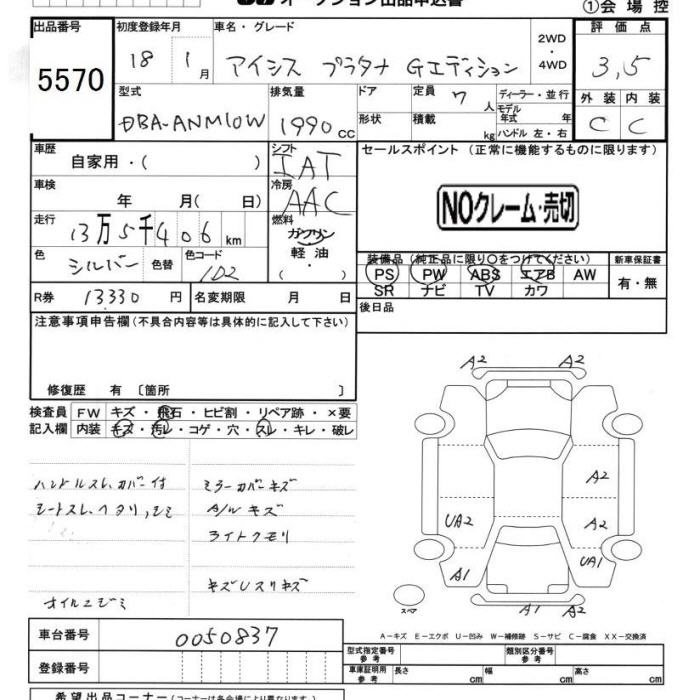 オークション出品申込書
①会場控
出品番号
5570
初度登録年月
18 1月
車名・グレード
アイシス プラタナ Gエディション
2WD・4WD
評価点
3,5
型式
DBA-ANM10W
排気量
1990cc
ドア
形状
定員 7人
積載 kg
ディーラー・並行
モデル年式 年
ハンドル 左・右
外装 内装
C C
車歴
自家用・( )
シフト
IAT
セールスポイント (正常に機能するものに限ります)
車検
年 月( 日)
冷房
AAC
NOクレーム・売切
走行
13万5千406km
燃料
ガソリン
軽油
・( )
色
シルバー
色替
色コード
1D2
装備品 (純正品に限り〇をつけてください)
PS PW ABS エアB AW
SR ナビ TV カワ
新車保証書
有・無
R券 13330円
名変期限 月 日
後日品
注意事項申告欄(不具合内容等は具体的に記入して下さい)
修復歴 有 〔箇所 〕
検査員記入欄
FW キズ・飛石・ヒビ割・リペア跡・×要
内装 キズ・汚レ・コゲ・穴・スレ・キレ・破レ
ハンドルスレ,カバー付
シートスレ,ヘタリ,シミ
オイルニジミ
ミラーカバーキズ
A/Wキズ
ライトクモリ
キズUスリキズ
A2 A2
A2
UA2 A2
A1 UA1
A1 A2
スペア
A-キズ E-エクボ U-凹み W-補修跡 S-サビ C-腐食 XX-交換済
車台番号
0050837
登録番号
型式指定番号 参考
類別区分番号 参考
車庫証明用 参考
長さ cm 幅 cm 高さ cm
希望出品コーナー(コーナーは各会場により異なります)